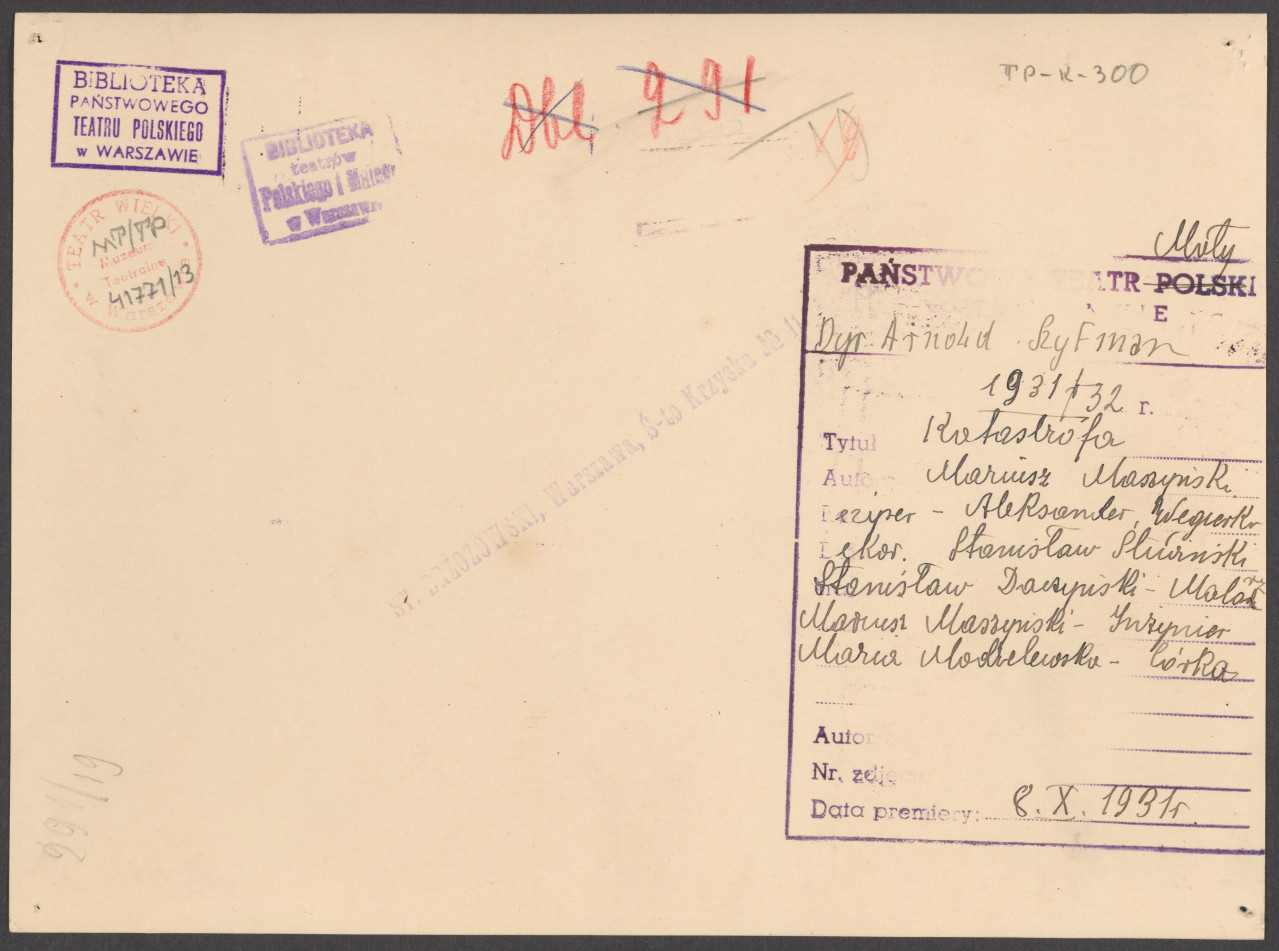 BIBLIOTEKA
PAŃSTWOWEGO
TEATRU POLSKIEGO
w WARSZAWIE
BIBLIOTEKA
teatrów
Polskiego i
w Warszawie
TEATR WIELKI
MT/TP
Muzeum
Teatralne
41771/13
w Warszawie
Dkl. 291
19
TP-K-300
Mały
PAŃSTWOWY TEATR POLSKI
Dyr Arnold Szyfman
1931/32 r.
Tytuł Katastrofa
Autor Mariusz Maszyński
Reżyser - Aleksander Węgierko
Dekor. Stanisław Śliwiński
Stanisław Daczyński - Malarz
Mariusz Maszyński - Inżynier
Maria Modzelewska - Córka
Autor
Nr. zdjęcia
Data premiery: 8. X. 1931r.
ST. BRZOZOWSKI, Warszawa, S-to Krzyska №
291/19